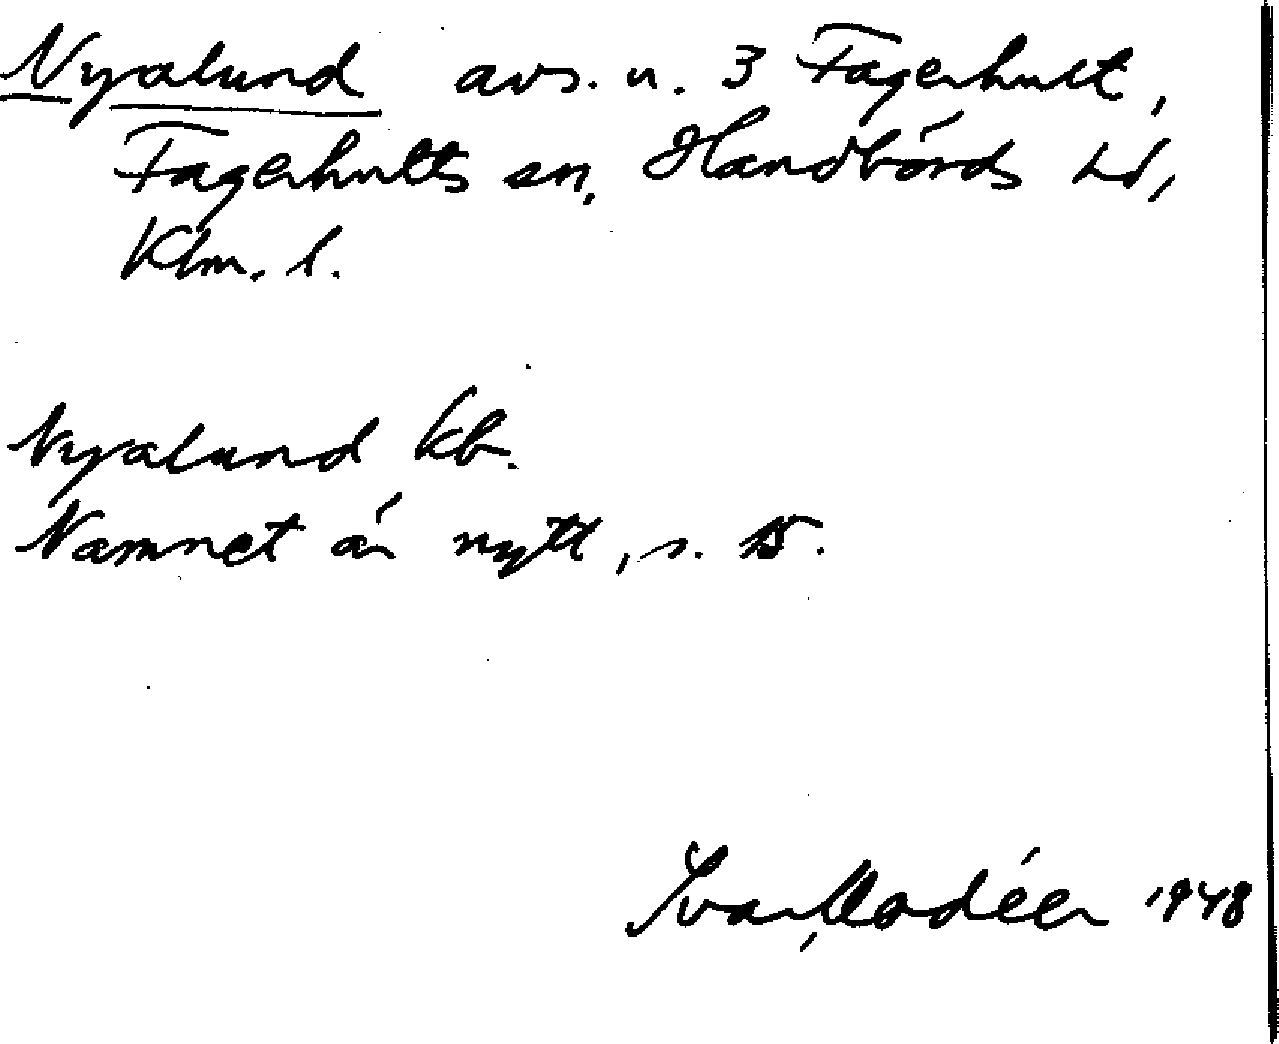 Nyalund avs. u. 3 Fagerhult,
Fagerhults sn, Handbörds hd,
Klm. l.
Nyalund kb.
Namnet är nytt, s.
Ivar Modéer 1948